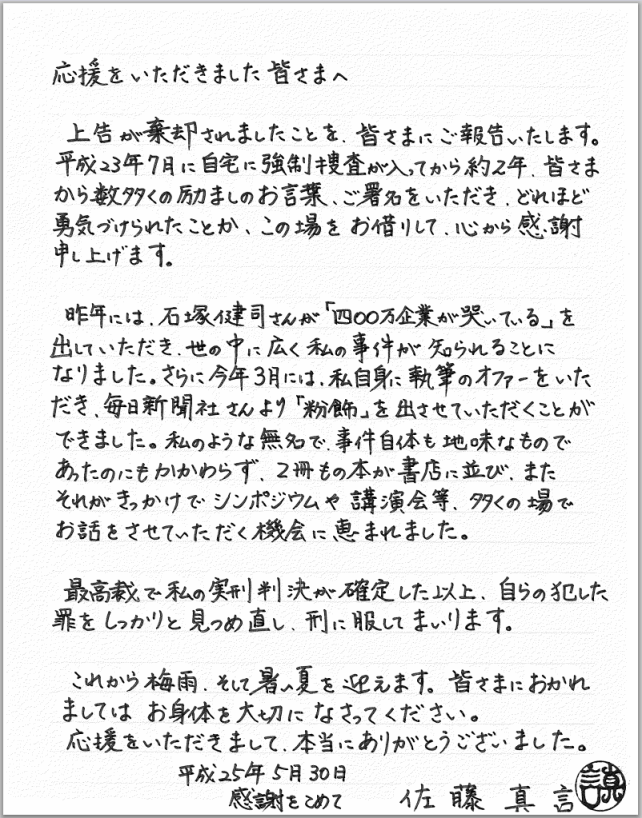 応援をいただきました皆さまへ
上告が棄却されましたことを、皆さまにご報告いたします。
平成23年7月に自宅に強制捜査が入ってから約2年、皆さま
から数多くの励ましのお言葉、ご署名をいただき、どれほど
勇気づけられたことか、この場をお借りして、心から感謝
申し上げます。
昨年には、石塚健司さんが「四〇〇万企業が哭いている」を
出していただき、世の中に広く私の事件が知られることに
なりました。さらに今年3月には、私自身に執筆のオファーをいた
だき、毎日新聞社さんより「粉飾」を出させていただくことが
できました。私のような無名で、事件自体も地味なもので
あったのにもかかわらず、2冊もの本が書店に並び、また
それがきっかけでシンポジウムや講演会等、多くの場で
お話をさせていただく機会に恵まれました。
最高裁で私の実刑判決が確定した以上、自らの犯した
罪をしっかりと見つめ直し、刑に服してまいります。
これから梅雨、そして暑い夏を迎えます。皆さまにおかれ
ましてはお身体を大切になさってください。
応援をいただきまして、本当にありがとうございました。
平成25年5月30日
感謝をこめて 佐藤真言
真言